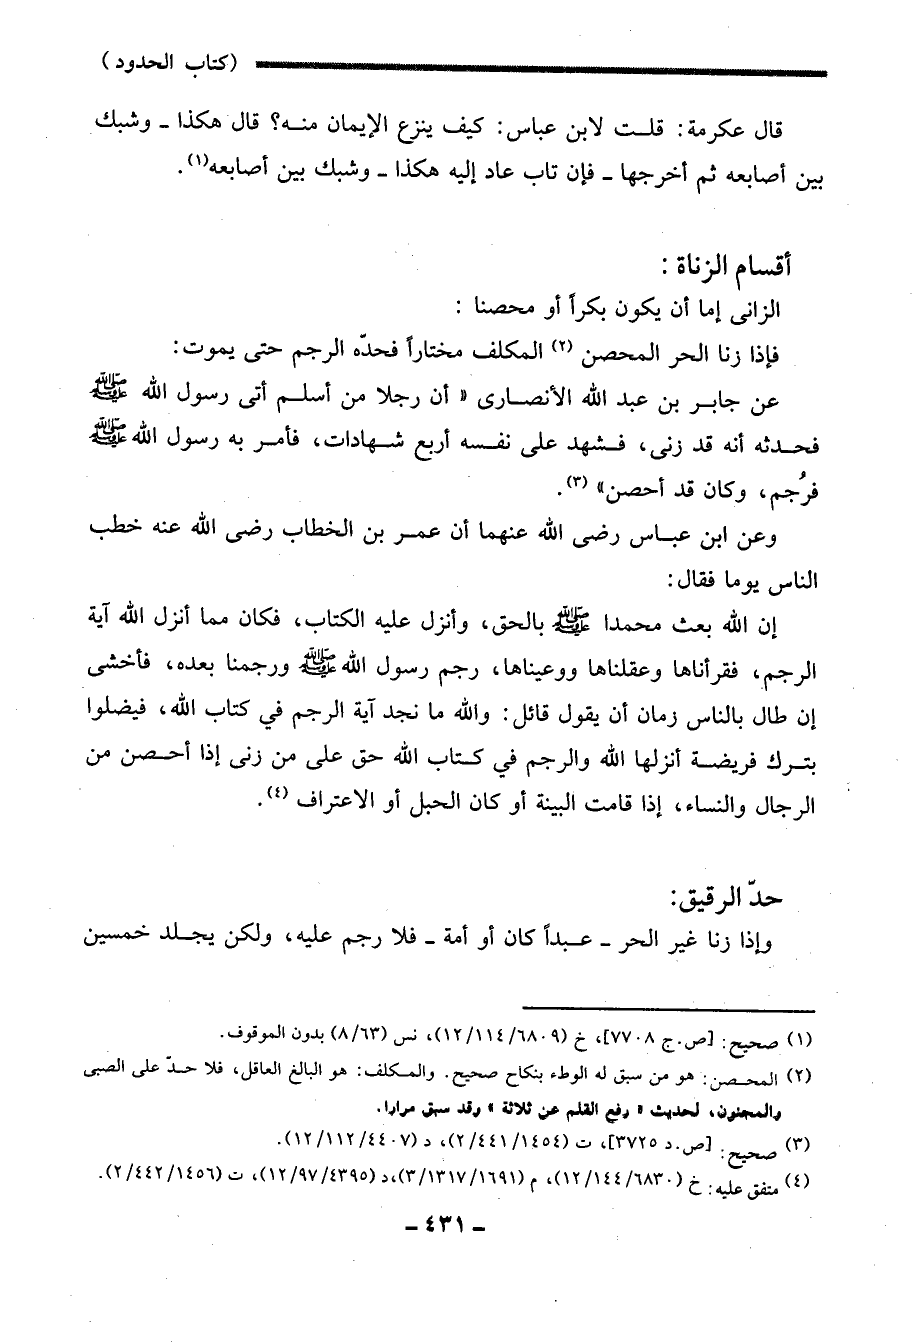 (كتاب الحدود)
قال عكرمة: قلت لابن عباس: كيف ينزع الإيمان منه؟ قال هكذا ـ وشبك
بين أصابعه ثم أخرجها ـ فإن تاب عاد إليه هكذا ـ وشبك بين أصابعه(١).
أقسام الزناة:
الزانى إما أن يكون بكراً أو محصنا :
فإذا زنا الحر المحصن (٢) المكلف مختاراً فحدّه الرجم حتى يموت:
عن جابر بن عبد الله الأنصارى « أن رجلا من أسلم أتى رسول الله ﷺ
فحدثه أنه قد زنى، فشهد على نفسه أربع شهادات، فأمر به رسول الله ﷺ
فرُجم، وكان قد أحصن» (٣).
وعن ابن عباس رضى الله عنهما أن عمر بن الخطاب رضى الله عنه خطب
الناس يوما فقال:
إن الله بعث محمدا ﷺ بالحق، وأنزل عليه الكتاب، فكان مما أنزل الله آية
الرجم، فقرأناها وعقلناها ووعيناها، رجم رسول الله ﷺ ورجمنا بعده، فأخشى
إن طال بالناس زمان أن يقول قائل: والله ما نجد آية الرجم في كتاب الله، فيضلوا
بترك فريضة أنزلها الله والرجم في كتاب الله حق على من زنى إذا أحصن من
الرجال والنساء، إذا قامت البينة أو كان الحبل أو الاعتراف (٤).
حدّ الرقيق:
وإذا زنا غير الحر ـ عبداً كان أو أمة ـ فلا رجم عليه، ولكن يجلد خمسين
(١) صحيح: [ص.ج ٧٧٠٨]، خ (٦٨٠٩/١١٤/١٢)، نس (٨/٦٣) بدون الموقوف.
(٢) المحصن: هو من سبق له الوطء بنكاح صحيح. والمكلف: هو البالغ العاقل، فلا حدّ على الصبى
والمجنون، لحديث « رفع القلم عن ثلاثة » وقد سبق مرارا.
(٣) صحيح: [ص.د ٣٧٢٥]، ت (١٤٥٤/٤٤١/٢)، د (٤٤٠٧/١١٢/١٢).
(٤) متفق عليه: خ (٦٨٣٠/١٤٤/١٢)، م (١٦٩١/١٣١٧/٣)،د (٤٣٩٥/٩٧/١٢)، ت (١٤٥٦/٤٤٢/٢).
ـ ٤٣١ ـ